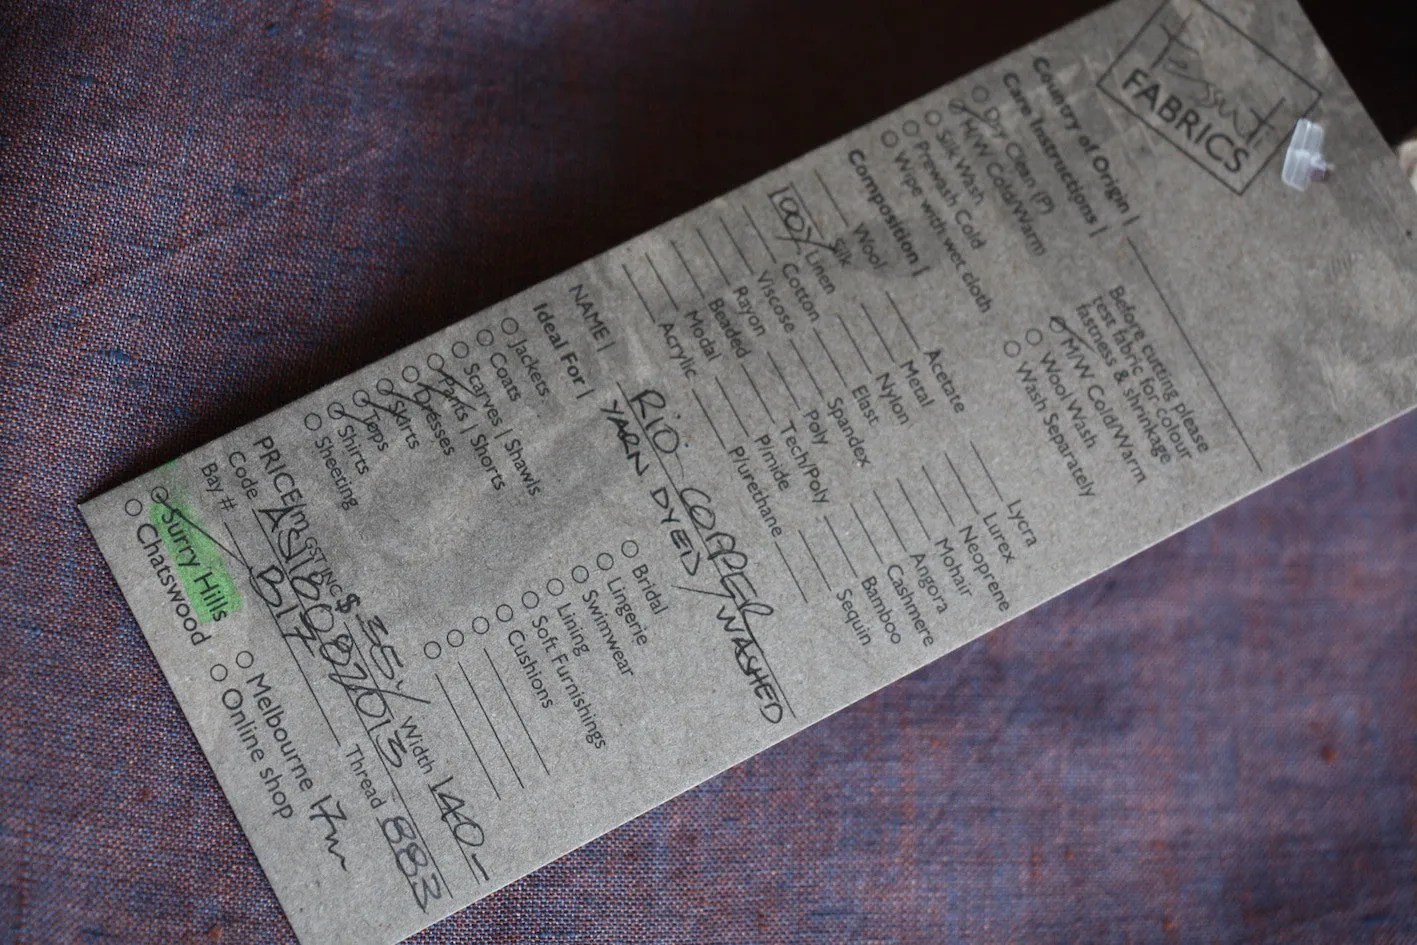 Tessuti
FABRICS
Country of Origin |
Care Instructions |
Dry Clean (P)
M/W Cold/Warm
Silk Wash
Prewash Cold
Wipe with wet cloth
Before cutting please
test fabric for colour
fastness & shrinkage
M/W Cold/Warm
Wool Wash
Wash Separately
Composition |
Wool
Silk
100% Linen
Cotton
Viscose
Rayon
Beaded
Modal
Acrylic
Acetate
Metal
Nylon
Elast
Spandex
Poly
Tech/Poly
P/mide
Plurethane
Lycra
Lurex
Neoprene
Mohair
Angora
Cashmere
Bamboo
Sequin
NAME | RIO COPPER
YARN DYED/WASHED
Ideal For |
Jackets
Coats
Scarves | Shawls
Pants | Shorts
Dresses
Skirts
Tops
Shirts
Sheeting
Bridal
Lingerie
Swimwear
Lining
Soft Furnishings
Cushions
PRICE/m GST INC $ 35/ Width 140-
Code Thread 883
Bay # B17
Surry Hills
Chatswood
Melbourne 17m
Online shop